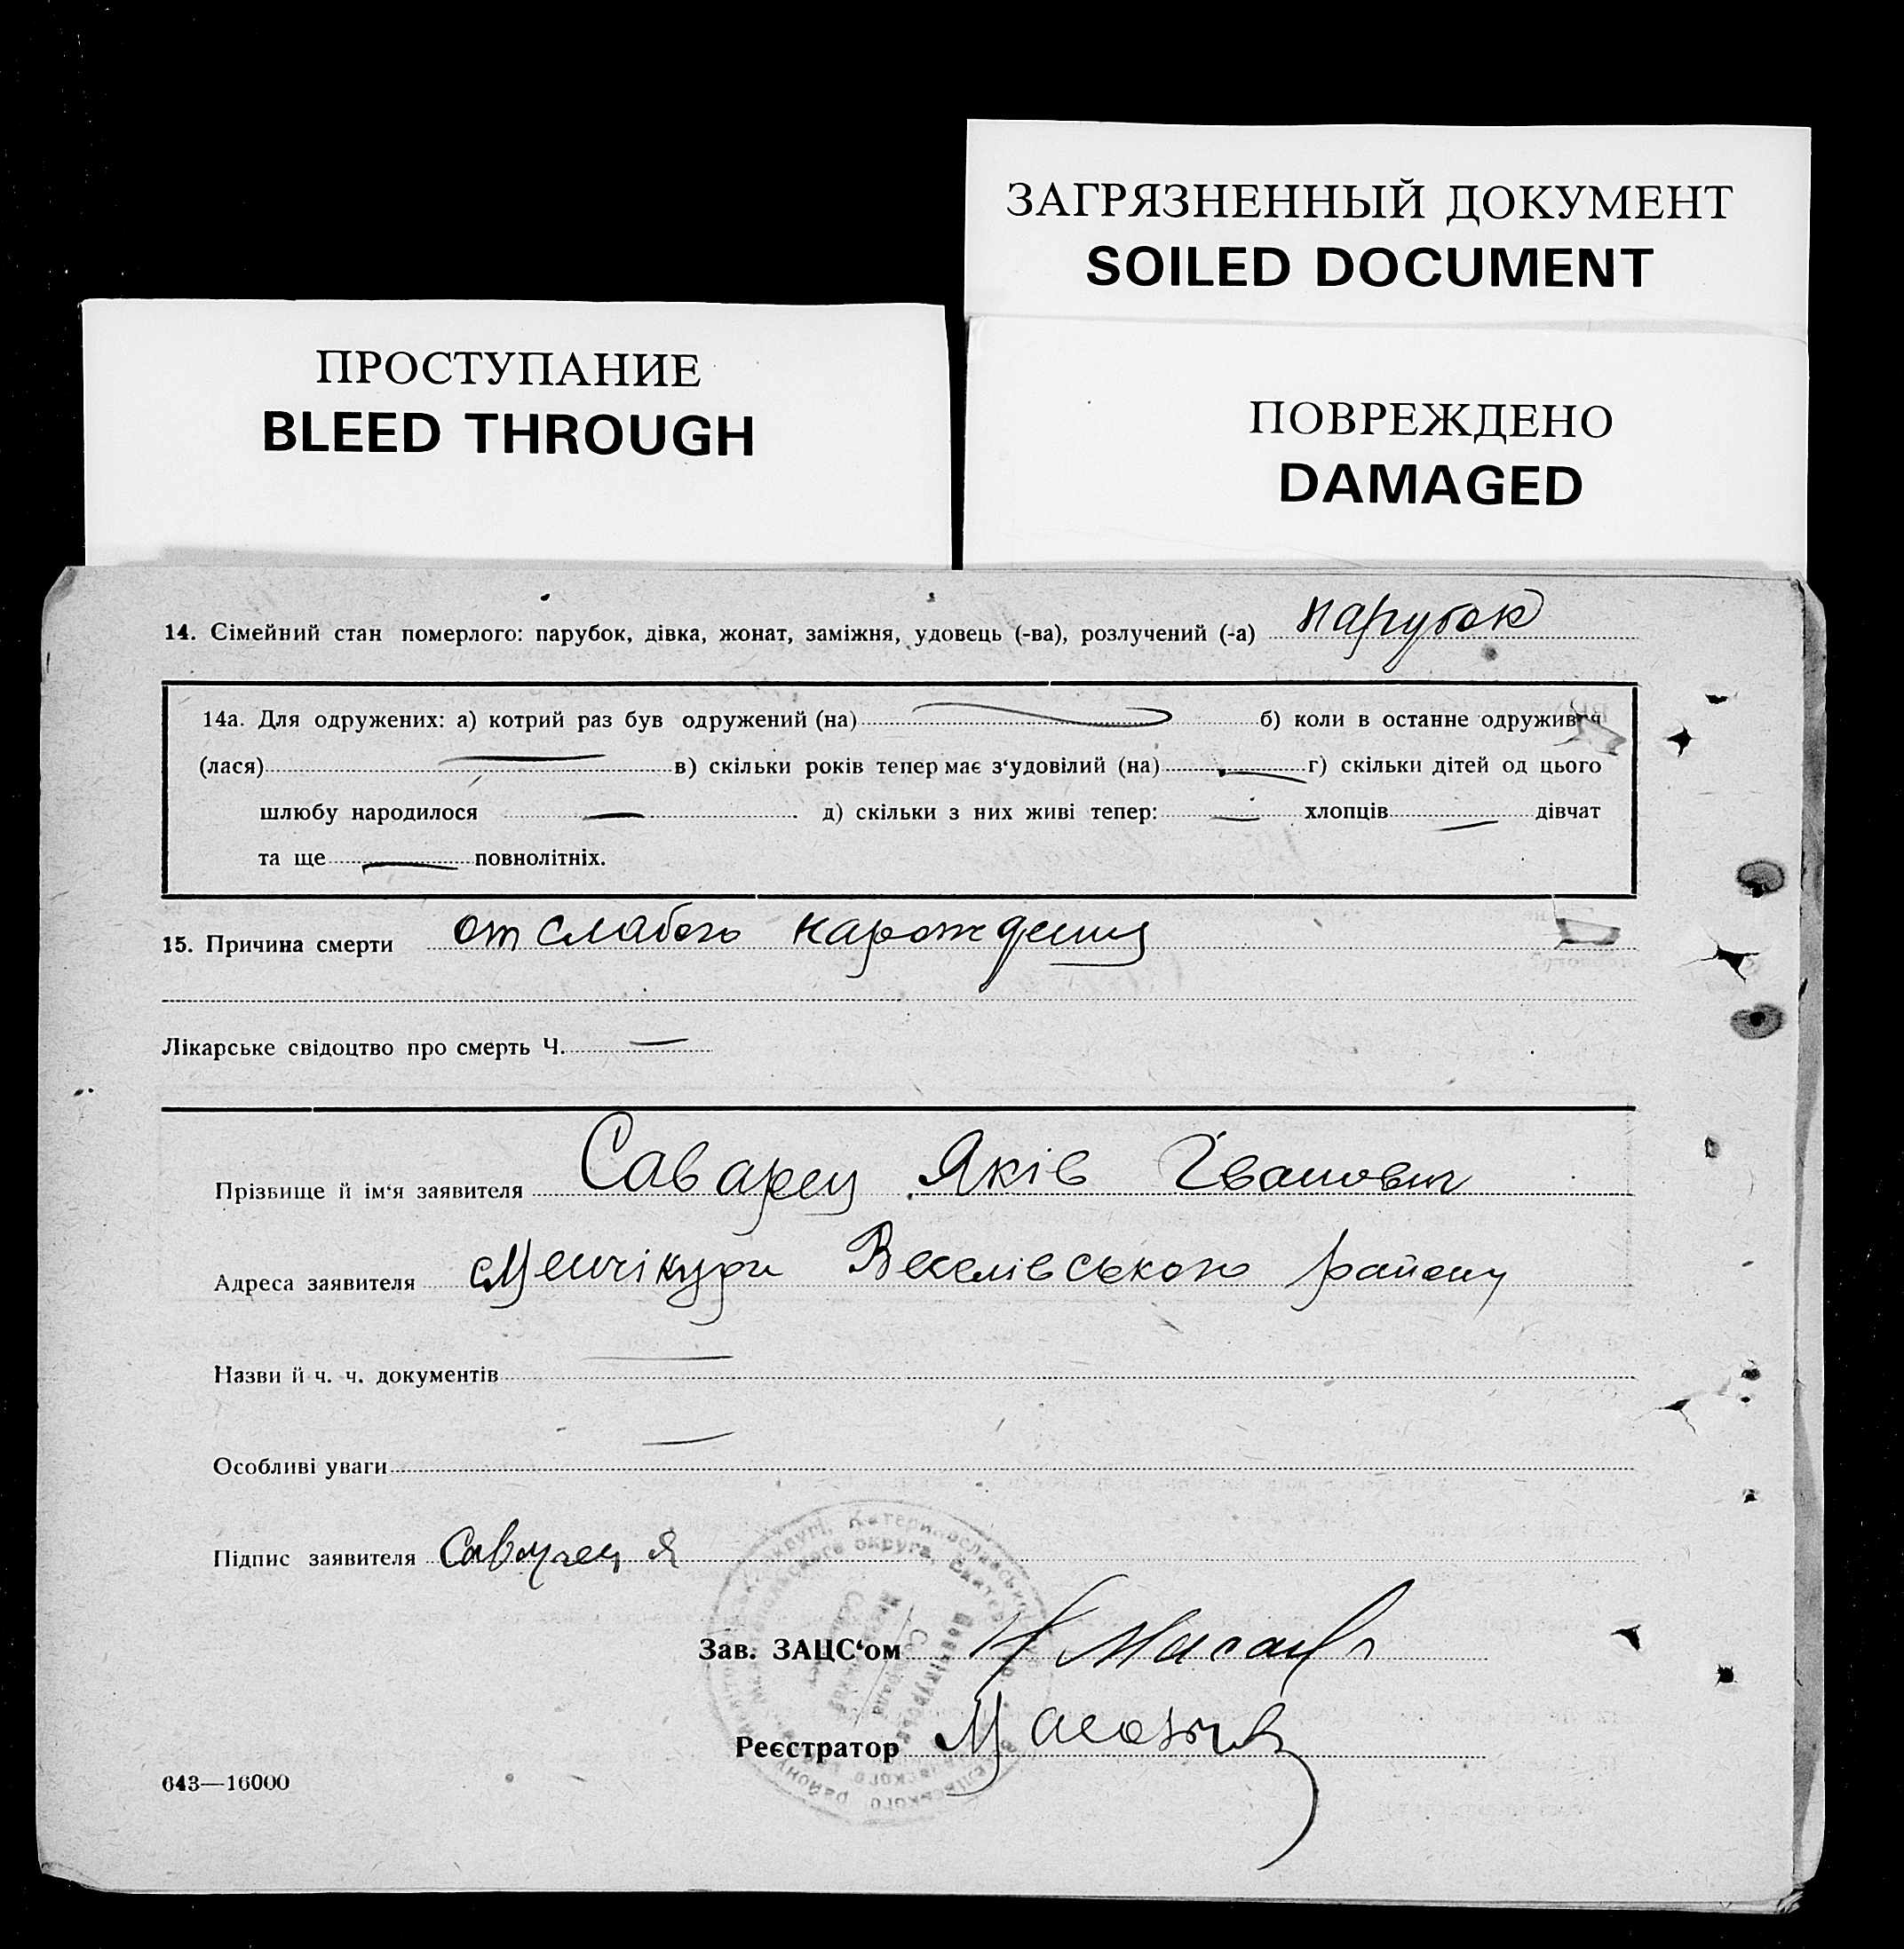 ЗАГРЯЗНЕННЫЙ ДОКУМЕНТ
SOILED DOCUMENT
ПРОСТУПАНИЕ
BLEED THROUGH
ПОВРЕЖДЕНО
DAMAGED
14. Сімейний стан померлого: парубок, дівка, жонат, заміжня, удовець (-ва), розлучений (-а) парубок
14а. Для одружених: а) котрий раз був одружений (на) б) коли в останне одружився
(лася) в) скільки років тепер має з‘удовілий (на) г) скільки дітей од цього
шлюбу народилося д) скільки з них живі тепер: хлопців дівчат
та ще повнолітніх.
15. Причина смерти от слабого нарождения
Лікарське свідоцтво про смерть Ч.
Прізвище й ім‘я заявителя Саварец Яків Іванович
Адреса заявителя Менчікури Веселівського району
Назви й ч. ч. документів
Особливі уваги
Підпис заявителя Саварец Я
Зав. ЗАЦС‘ом
Реєстратор
643—16000